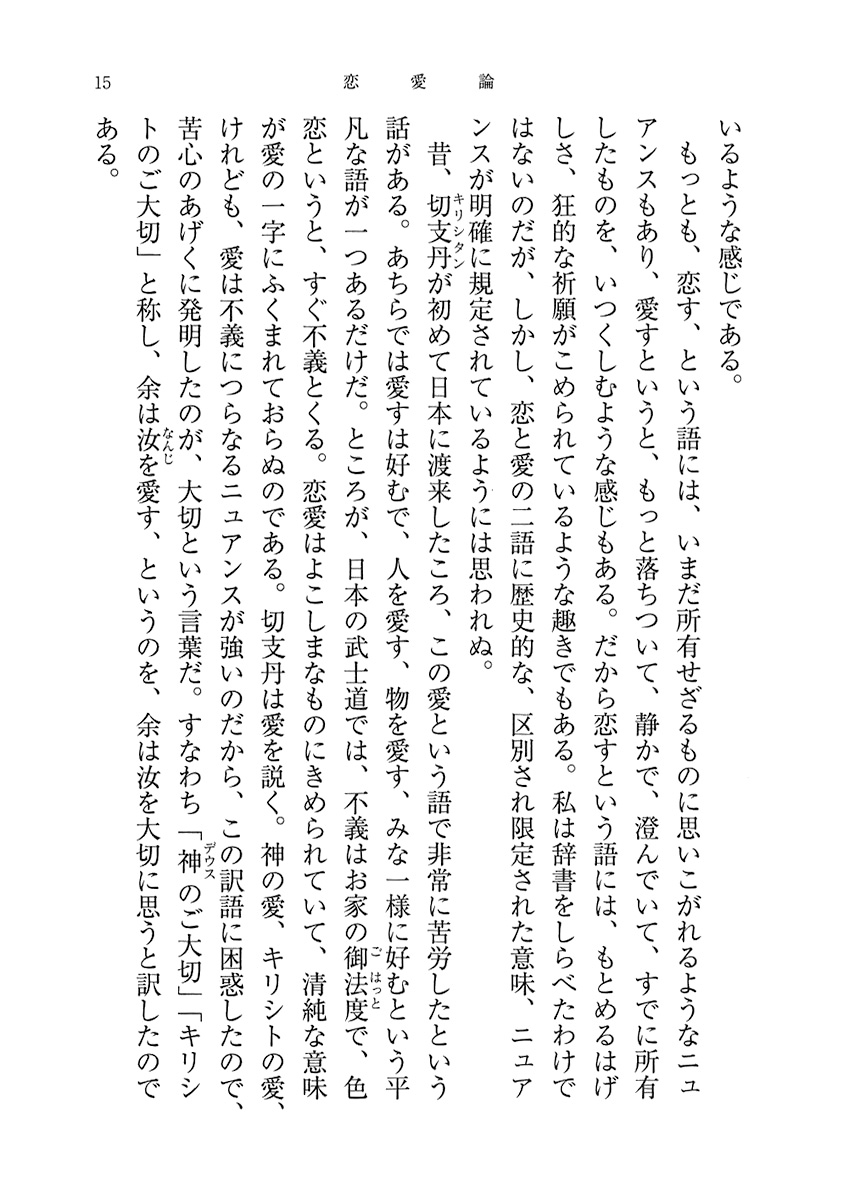 15
恋愛論
いるような感じである。
もっとも、恋す、という語には、いまだ所有せざるものに思いこがれるようなニュ
アンスもあり、愛すというと、もっと落ちついて、静かで、澄んでいて、すでに所有
したものを、いつくしむような感じもある。だから恋すという語には、もとめるはげ
しさ、狂的な祈願がこめられているような趣きでもある。私は辞書をしらべたわけで
はないのだが、しかし、恋と愛の二語に歴史的な、区別され限定された意味、ニュア
ンスが明確に規定されているようには思われぬ。
昔、切支丹キリシタンが初めて日本に渡来したころ、この愛という語で非常に苦労したという
話がある。あちらでは愛すは好むで、人を愛す、物を愛す、みな一様に好むという平
凡な語が一つあるだけだ。ところが、日本の武士道では、不義はお家の御法度ごはっとで、色
恋というと、すぐ不義とくる。恋愛はよこしまなものにきめられていて、清純な意味
が愛の一字にふくまれておらぬのである。切支丹は愛を説く。神の愛、キリシトの愛、
けれども、愛は不義につらなるニュアンスが強いのだから、この訳語に困惑したので、
苦心のあげくに発明したのが、大切という言葉だ。すなわち「神デウスのご大切」「キリシ
トのご大切」と称し、余は汝なんじを愛す、というのを、余は汝を大切に思うと訳したので
ある。